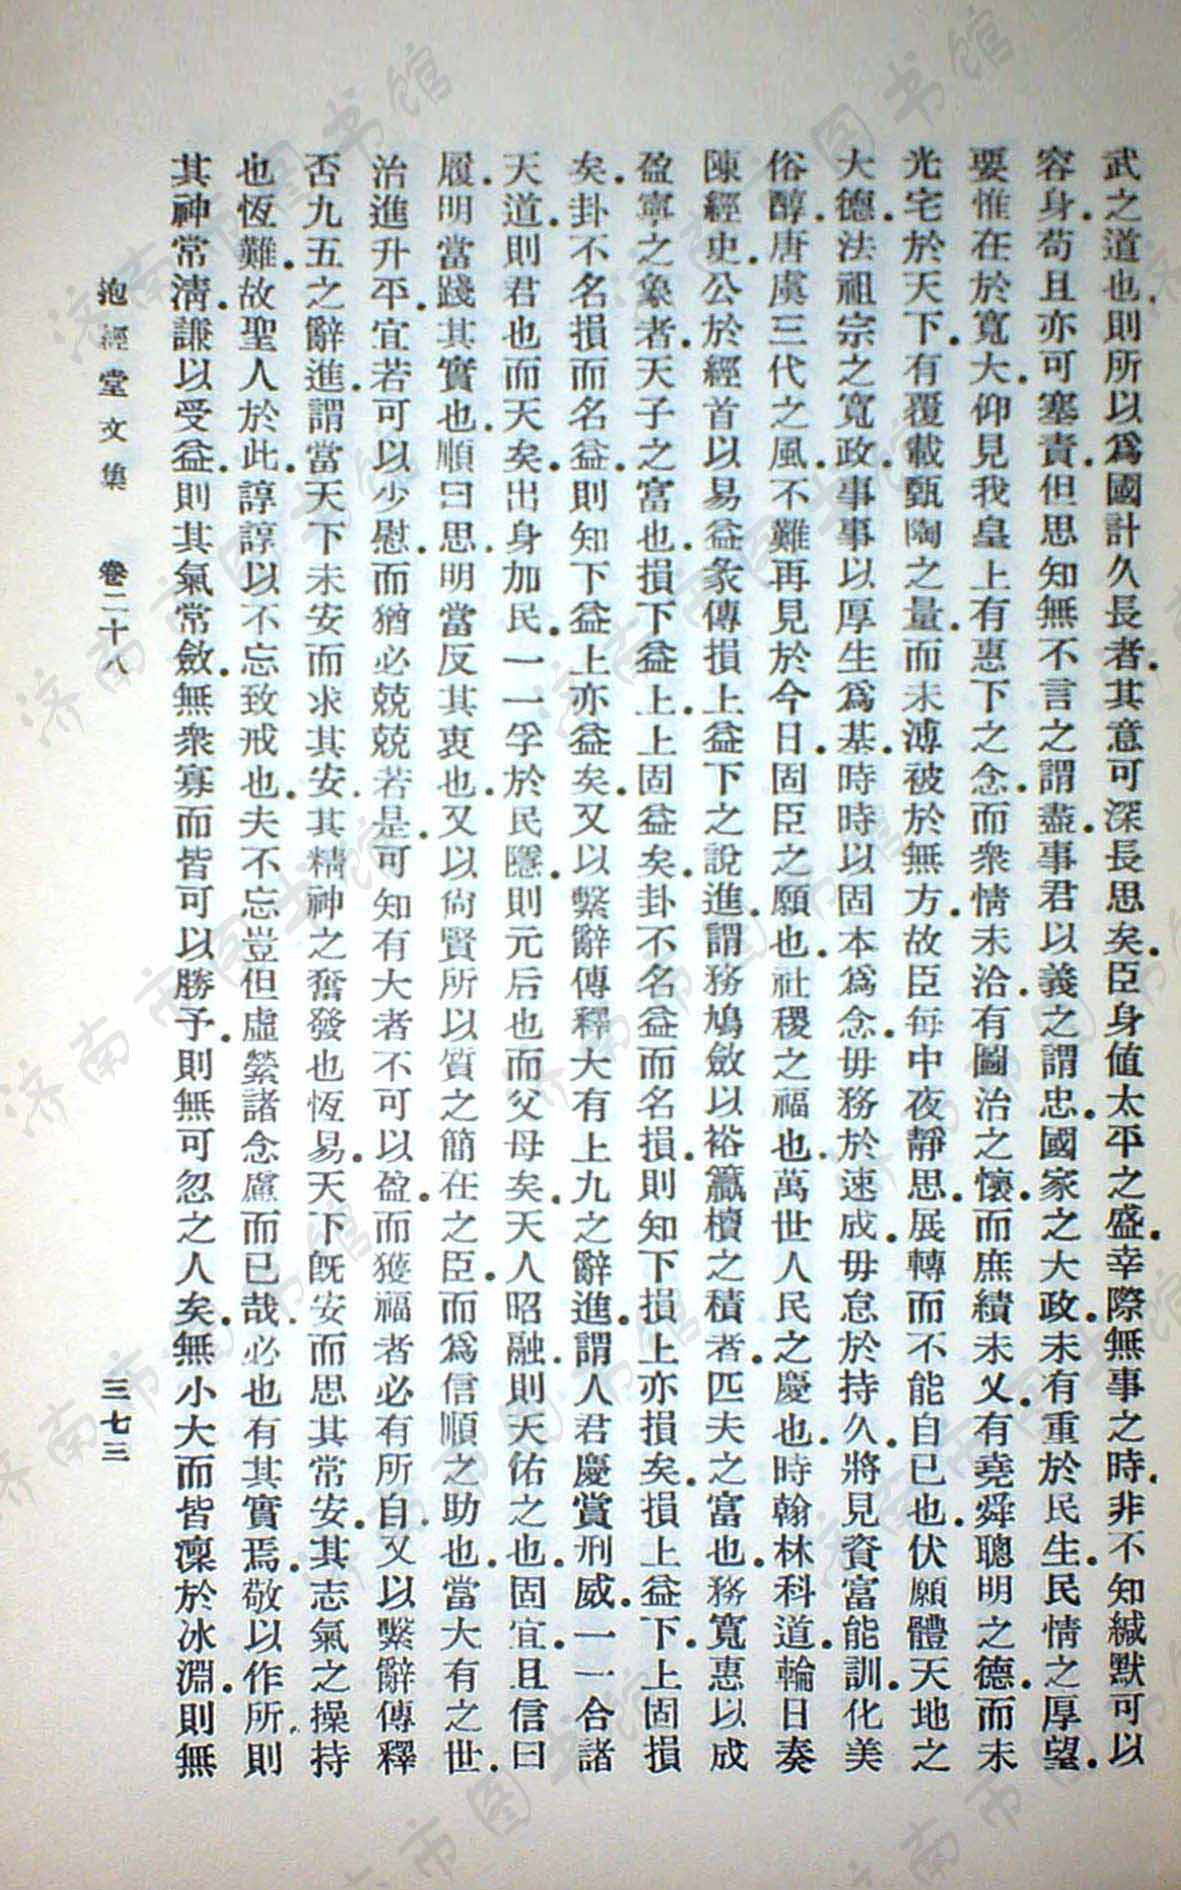 武之道也則所以爲國計久長者其意可深長思矣臣身値太平之盛幸際無事之時非不知緘默可以
容身苟且亦可塞責但思知無不言之謂盡事君以義之謂忠國家之大政未有重於民生民情之厚望
要惟在於寬大仰見我皇上有惠下之念而衆情未洽有圖治之懷而庶績未乂有堯舜聰明之德而未
光宅於天下有覆載甄陶之量而未溥被於無方故臣每中夜靜思展轉而不能自已也伏願體天地之
大德法祖宗之寬政事事以厚生爲基時時以固本爲念毋務於速成毋怠於持久將見資富能訓化美
俗醇唐虞三代之風不難再見於今日固臣之願也社稷之福也萬世人民之慶也時翰林科道輪日奏
陳經史公於經首以易益彖傳損上益下之說進謂務鳩斂以裕籯櫝之積者匹夫之富也務寬惠以成
盈寧之象者天子之富也損下益上上固益矣卦不名益而名損則知下損上亦損矣損上益下上固損
矣卦不名損而名益則知下益上亦益矣又以繫辭傳釋大有上九之辭進謂人君慶賞刑威一一合諸
天道則君也而天矣出身加民一一孚於民隱則元后也而父母矣天人昭融則天佑之也固宜且信曰
履明當踐其實也順曰思明當反其衷也又以尙賢所以質之簡在之臣而爲信順之助也當大有之世
治進升平宜若可以少慰而猶必兢兢若是可知有大者不可以盈而獲福者必有所自又以繫辭傳釋
否九五之辭進謂當天下未安而求其安其精神之奮發也恆易天下旣安而思其常安其志氣之操持
也恆難故聖人於此諄諄以不忘致戒也夫不忘豈但虛縈諸念慮而已哉必也有其實焉敬以作所則
其神常淸謙以受益則其氣常斂無衆寡而皆可以勝予則無可忽之人矣無小大而皆凜於冰淵則無
抱經堂文集 卷二十八 三七三
济南市图书馆